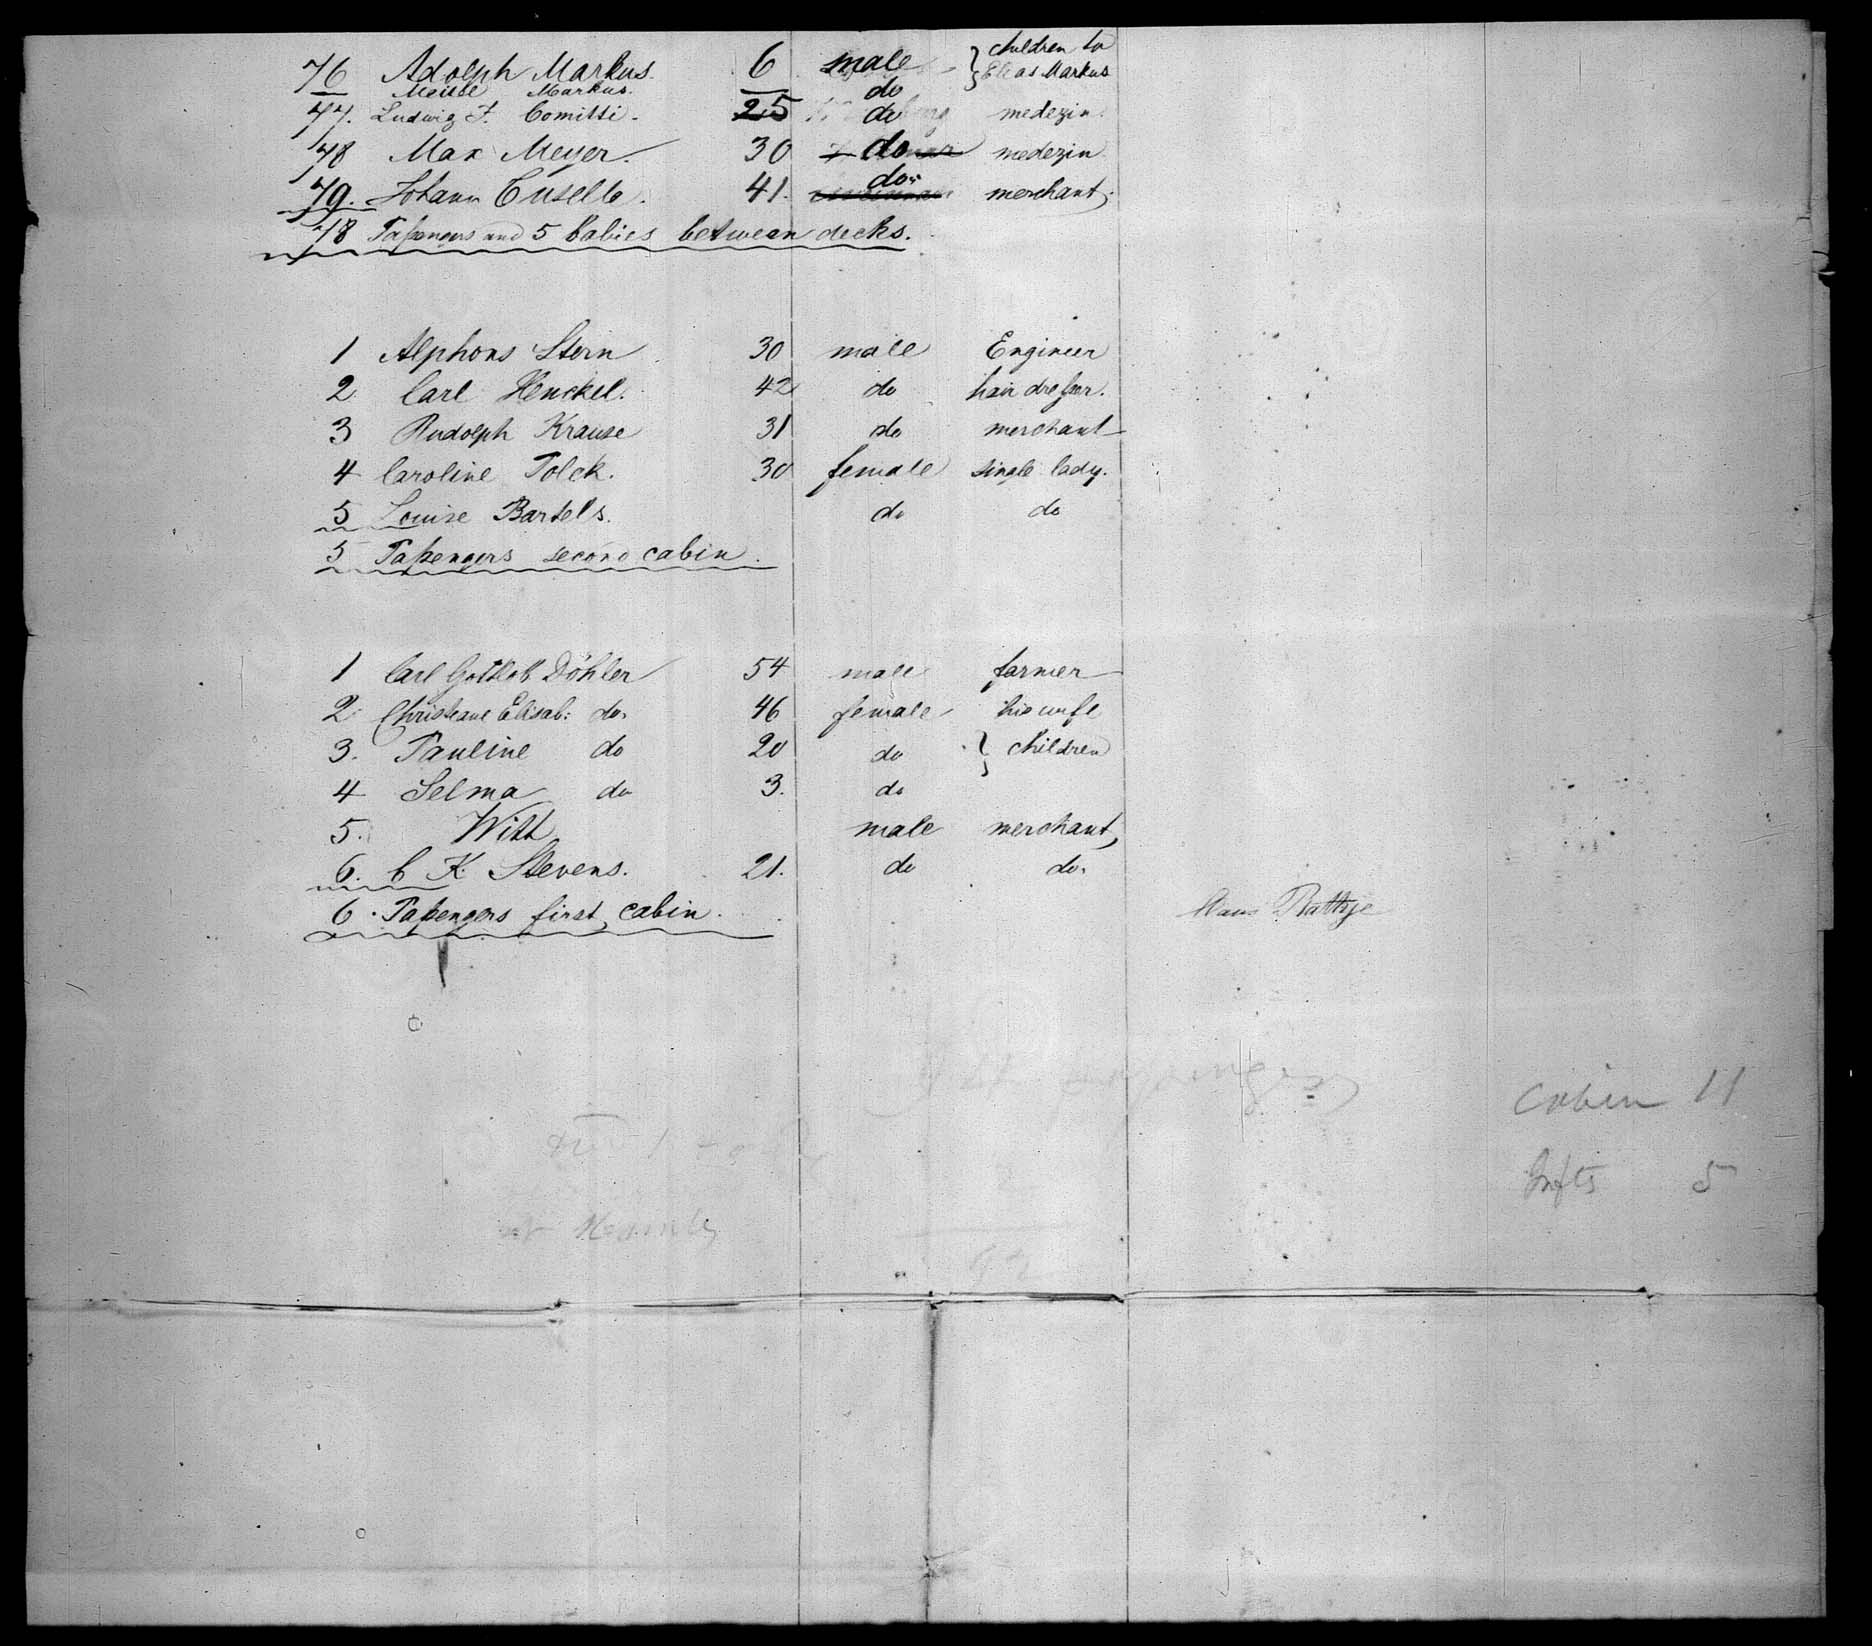 76 Adolph Markus. 6 male } children to
Meisse Markus. do Elias Markus
77. Ludwig F. Comitti. 25 do medezin.
78 Max Meyer. 30 do medezin
79. Johann Cuselle. 41. do merchant.
78 Paßengers and 5 babies between decks.
1 Alphons Stern 30 male Engineer
2 Carl Henckel. 42 do hair dreßer.
3 Rudolph Krause 31 do merchant
4 Caroline Polck. 30 female single lady.
5 Louise Bartels. do do
5 Paßengers second cabin.
1 Carl Gottlob Döhler 54 male farmer
2 Christiane Elisab: do. 46 female his wife
3. Pauline do 20 do } children
4 Selma do 3. do
5. Witt male merchant
6. C K. Stevens. 21. do do.
6. Paßengers first cabin.
Claus Rathje
Cabin 11
5